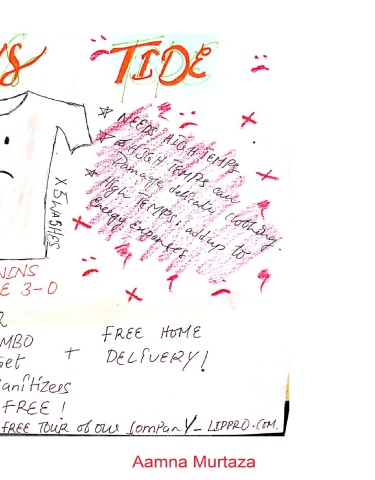 VS TIDE
* NEEDS HIGH TEMPS
* HIGH TEMPS can
Damage delicate clothing.
* High TEMPS; add up to
energy expenses
X 5 WASHES
WINS
E 3-0
R
MBO
Get
anitizers
FREE!
+ FREE HOME
DELIVERY!
FREE TOUR of our Company_LIPPRO.COM.
Aamna Murtaza